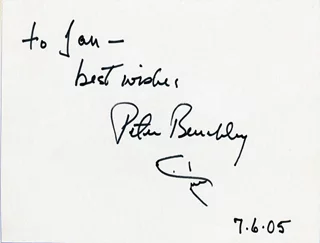 to Jan —
best wishes
Peter Benchley
7.6.05